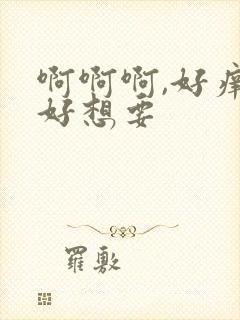 啊啊啊,好痒
好想要
羅敷